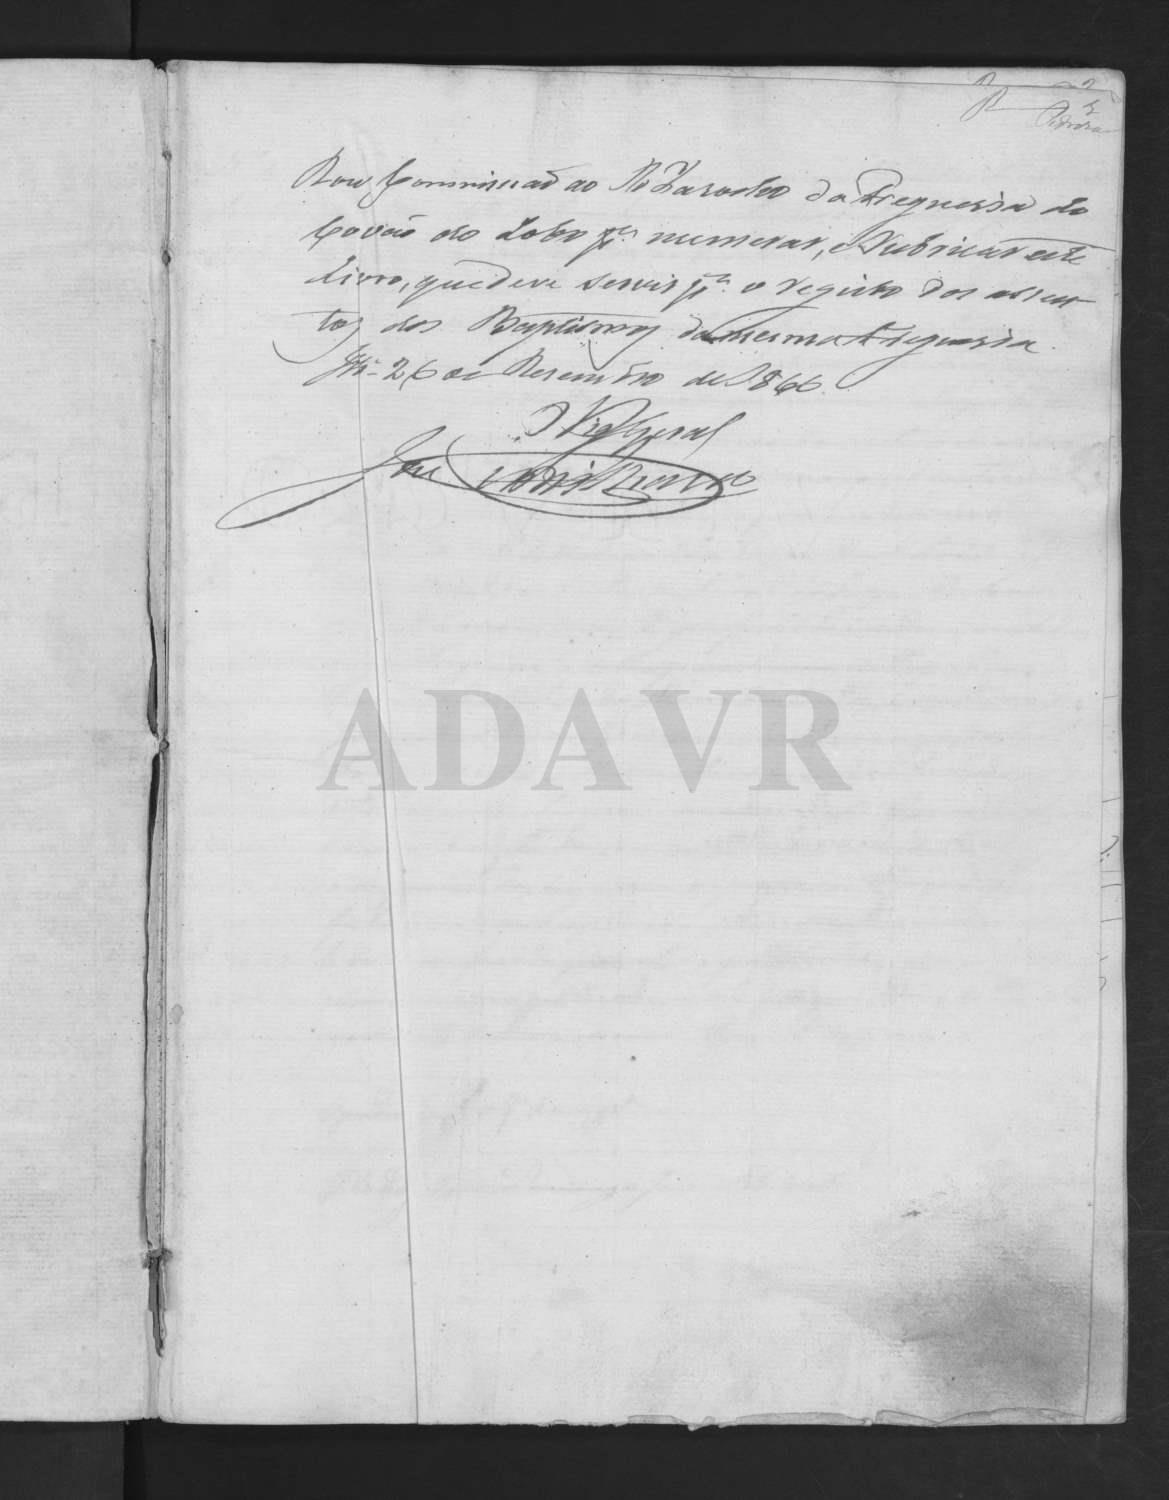 Dou Commissaõ ao Rd.º Parocho da Freguesia do
Covão do Lobo pª. numerar, e Rubricar este
Livro, que deve servir pª. o registo dos assen-
tos dos Baptismos da mesma Freguesia.
26 de Desembro de 1866.
O Vigº Geral
José
ADAVR